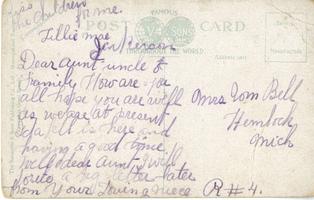 Kiss
the children
for me.
Lillie Mae
Jenkerson
FAMOUS
POST CARD
THROUGHOUT THE WORLD
Dear Aunt uncle &
Family How are you
all hope you are well
as we are at present
is here and
having a good time.
Well dear Aunt, I will
write a big letter later
from Your Loving niece
Mrs Tom Bell
Hemlock
Mich
R#4.